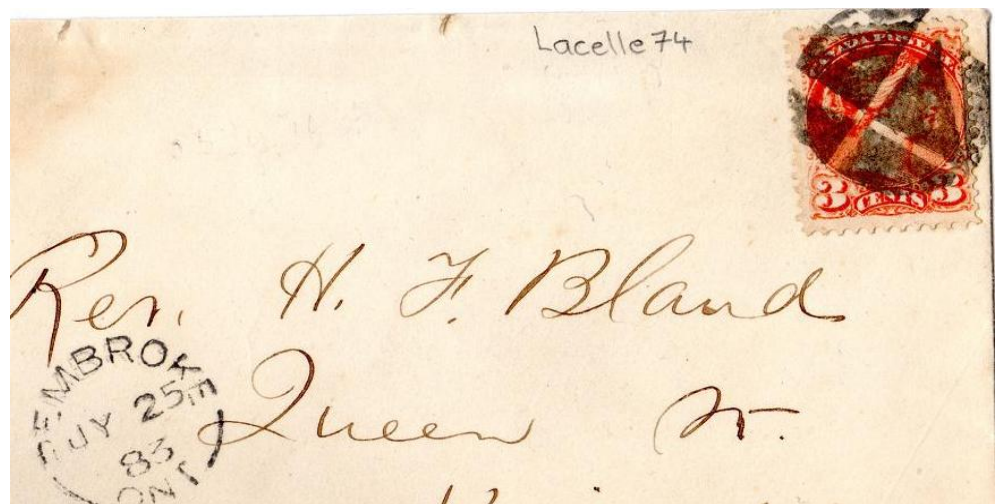 Lacelle 74
CANADA POSTAGE
3 CENTS 3
Rev. H. F. Bland
Queen St.
PEMBROKE
JY 25
83
ONT